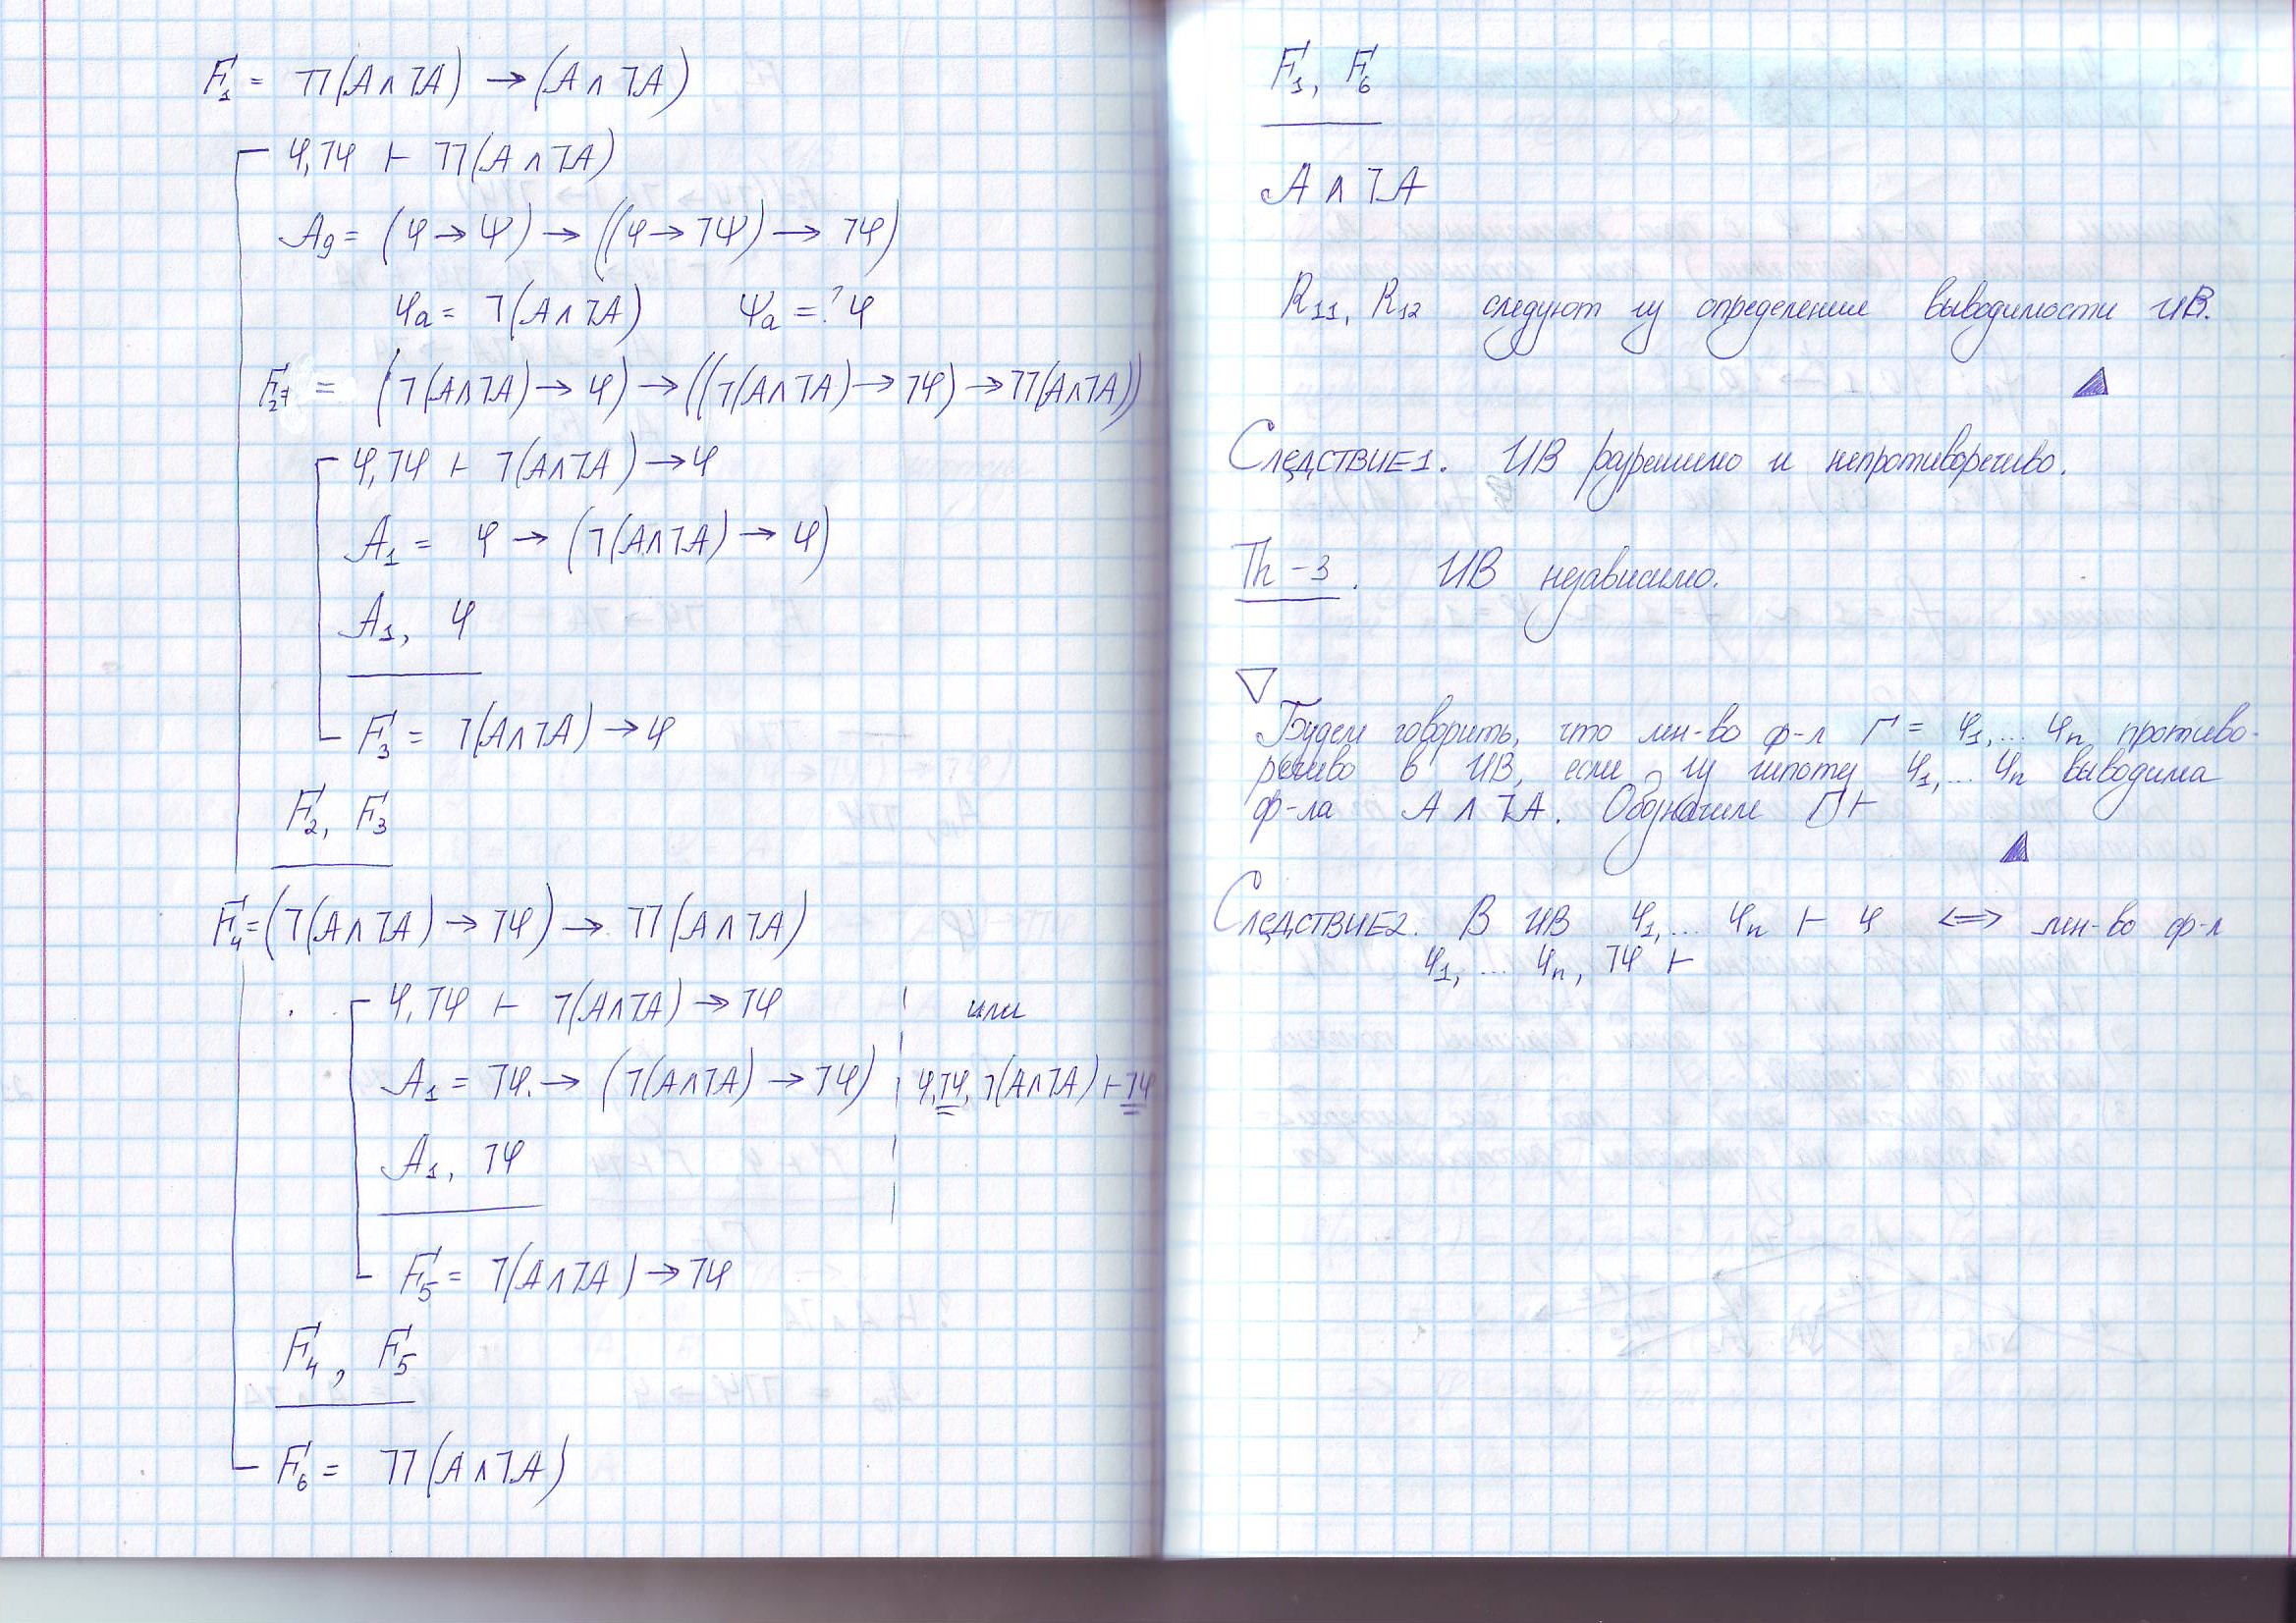 F₁ = ⅂⅂(A∧⅂A) → (A∧⅂A)
φ, ⅂φ ⊢ ⅂⅂(A∧⅂A)
A₉ = (φ→ψ) → ((φ→⅂ψ) → ⅂φ)
φₐ = ⅂(A∧⅂A) ψₐ =? φ
F₂ = (⅂(A∧⅂A) → φ) → ((⅂(A∧⅂A) → ⅂φ) → ⅂⅂(A∧⅂A))
φ, ⅂φ ⊢ ⅂(A∧⅂A) → φ
A₁ = φ → (⅂(A∧⅂A) → φ)
A₁, φ
F₃ = ⅂(A∧⅂A) → φ
F₂, F₃
F₄ = (⅂(A∧⅂A) → ⅂φ) → ⅂⅂(A∧⅂A)
φ, ⅂φ ⊢ ⅂(A∧⅂A) → ⅂φ или
A₁ = ⅂φ → (⅂(A∧⅂A) → ⅂φ) φ, ⅂φ, ⅂(A∧⅂A) ⊢ ⅂φ
A₁, ⅂φ
F₅ = ⅂(A∧⅂A) → ⅂φ
F₄, F₅
F₆ = ⅂⅂(A∧⅂A)
F₁, F₆
A∧⅂A
R₁₁, R₁₂ следуют из определение выводимости ИВ.
Следствие1. ИВ разрешимо и непротиворечиво.
Th-3. ИВ независимо.
▽
Будем говорить, что мн-во ф-л Γ = φ₁,... φₙ противо-
речиво в ИВ, если из гипотез φ₁,... φₙ выводима
ф-ла A∧⅂A. Обозначим Γ⊢
Следствие2. В ИВ φ₁,... φₙ ⊢ φ ⟺ мн-во ф-л
φ₁, ... φₙ, ⅂φ ⊢